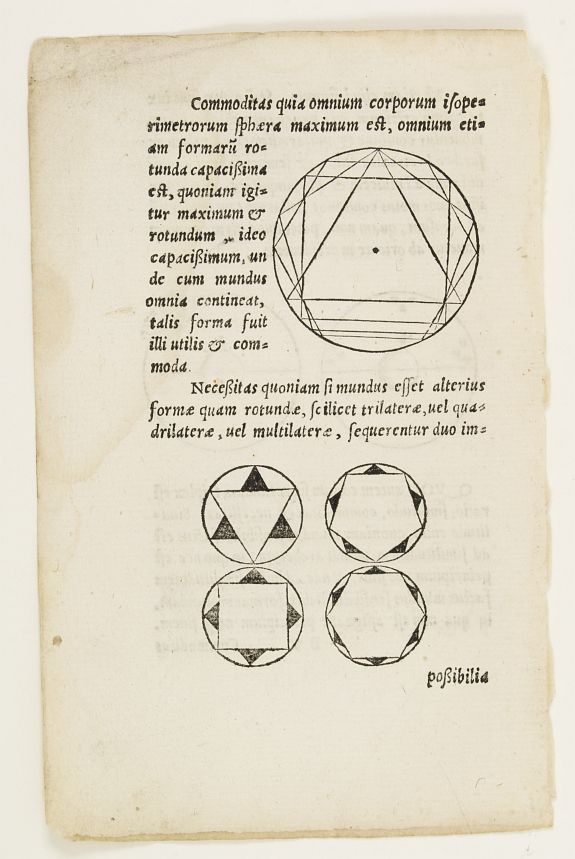 Commoditas quia omnium corporum iſope=
rimetrorum ſphæra maximum eſt, omnium eti=
am formarũ ro=
tunda capacißima
eſt, quoniam igi=
tur maximum &
rotundum, ideo
capacißimum, un
de cum mundus
omnia contineat,
talis forma fuit
illi utilis & com=
moda.
Neceßitas quoniam ſi mundus eſſet alterius
formæ quam rotundæ, ſcilicet trilateræ, uel qua=
drilateræ, uel multilateræ, ſequerentur duo im=
poßibilia